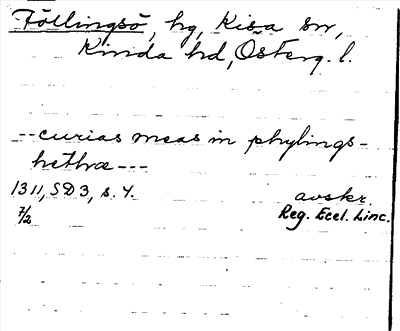 Föllingsö, hg, Kisa sn,
Kinda hd, Österg. l.
--curias meas in phylings-
hethræ---
1311, SD3, s. 4.
7/2
avskr.
Reg. Eccl. Linc.